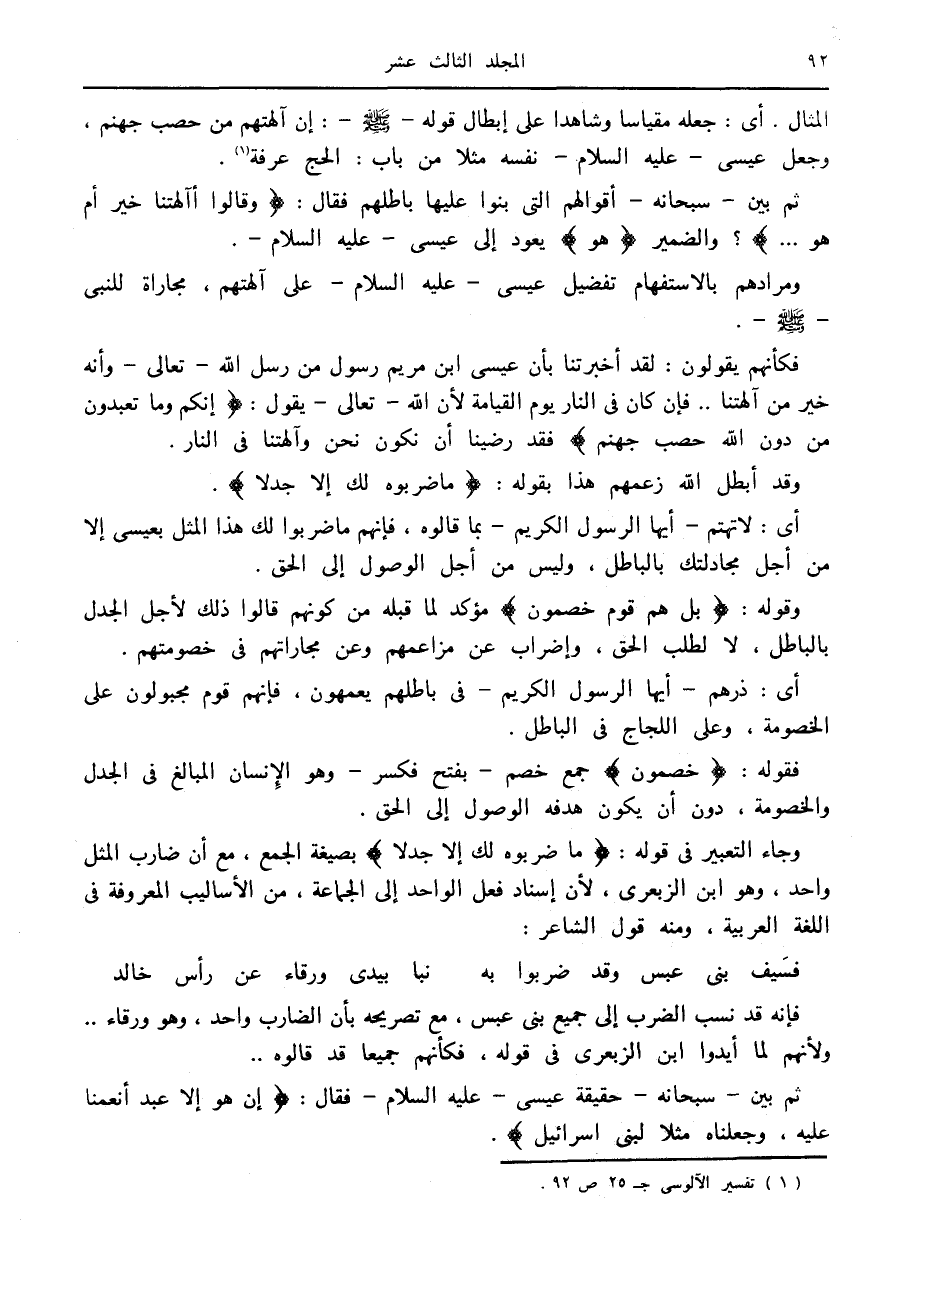 ٩٢ المجلد الثالث عشر
المثال . أى : جعله مقياسا وشاهدا على إبطال قوله - ﷺ - : إن آلهتهم من حصب جهنم ،
وجعل عيسى - عليه السلام - نفسه مثلا من باب : الحج عرفة(١) .
ثم بين - سبحانه - أقوالهم التى بنوا عليها باطلهم فقال : ﴿ وقالوا أآلهتنا خير أم
هو ... ﴾ ؟ والضمير ﴿ هو ﴾ يعود إلى عيسى - عليه السلام - .
ومرادهم بالاستفهام تفضيل عيسى - عليه السلام - على آلهتهم ، مجاراة للنبى
- ﷺ - .
فكأنهم يقولون : لقد أخبرتنا بأن عيسى ابن مريم رسول من رسل الله - تعالى - وأنه
خير من آلهتنا .. فإن كان فى النار يوم القيامة لأن الله - تعالى - يقول : ﴿ إنكم وما تعبدون
من دون الله حصب جهنم ﴾ فقد رضينا أن نكون نحن وآلهتنا فى النار .
وقد أبطل الله زعمهم هذا بقوله : ﴿ ماضربوه لك إلا جدلا ﴾ .
أى : لاتهتم - أيها الرسول الكريم - بما قالوه ، فإنهم ماضربوا لك هذا المثل بعيسى إلا
من أجل مجادلتك بالباطل ، وليس من أجل الوصول إلى الحق .
وقوله : ﴿ بل هم قوم خصمون ﴾ مؤكد لما قبله من كونهم قالوا ذلك لأجل الجدل
بالباطل ، لا لطلب الحق ، وإضراب عن مزاعمهم وعن مجاراتهم فى خصومتهم .
أى : ذرهم - أيها الرسول الكريم - فى باطلهم يعمهون ، فإنهم قوم مجبولون على
الخصومة ، وعلى اللجاج فى الباطل .
فقوله : ﴿ خصمون ﴾ جمع خصم - بفتح فكسر - وهو الإِنسان المبالغ فى الجدل
والخصومة ، دون أن يكون هدفه الوصول إلى الحق .
وجاء التعبير فى قوله : ﴿ ما ضربوه لك إلا جدلا ﴾ بصيغة الجمع ، مع أن ضارب المثل
واحد ، وهو ابن الزبعرى ، لأن إسناد فعل الواحد إلى الجماعة ، من الأساليب المعروفة فى
اللغة العربية ، ومنه قول الشاعر :
فسَيف بنى عبس وقد ضربوا به نبا بيدى ورقاء عن رأس خالد
فإنه قد نسب الضرب إلى جميع بنى عبس ، مع تصريحه بأن الضارب واحد ، وهو ورقاء ..
ولأنهم لما أيدوا ابن الزبعرى فى قوله ، فكأنهم جميعا قد قالوه ..
ثم بين - سبحانه - حقيقة عيسى - عليه السلام - فقال : ﴿ إن هو إلا عبد أنعمنا
عليه ، وجعلناه مثلا لبنى اسرائيل ﴾ .
( ١ ) تفسير الآلوسى جـ ٢٥ ص ٩٢ .